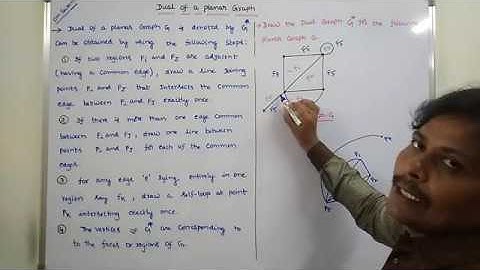 Dual of a planar Graph
→ Dual of a planar Graph G is denoted by G*
Can be obtained by using the following steps:
① If two regions Fi and Fj are adjacent
(having a common edge), draw a line joining
points Pi and Pj that intersects the common
edge between Fi and Fj exactly once.
② If there is more than one edge common
between Fi and Fj, draw one line between
points Pi and Pj for each of the common
edges.
③ For any edge 'e' lying entirely in one
region say FK, draw a self-loop at point
PK intersecting exactly once.
④ The vertices of G* are corresponding to
to the faces or regions of G.
→ Draw the Dual Graph G* for the following
planar Graph G